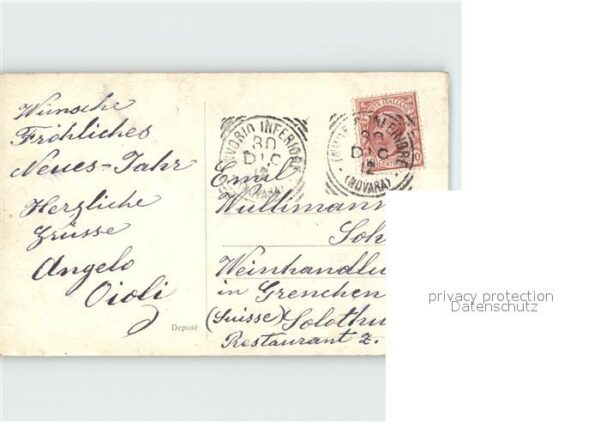 Wünsche
Fröhliches
Neues-Jahr
Herzliche
Grüsse
Angelo
Oioli
Deposé
INVORIO INFERIORE
30
DIC
12
(NOVARA)
30
DIC
12
(NOVARA)
POSTE ITALIANE
Emil
Wullimann
Soh
Weinhandlu
in Grenchen
(Suisse) Solothu
Restaurant z.
privacy protection
Datenschutz